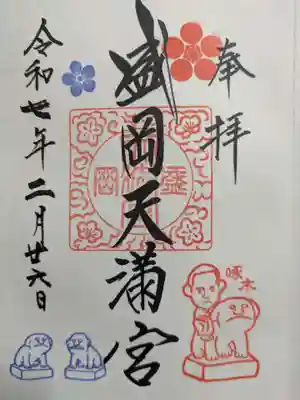 奉拝
盛岡天満宮
令和七年二月廿六日
啄木